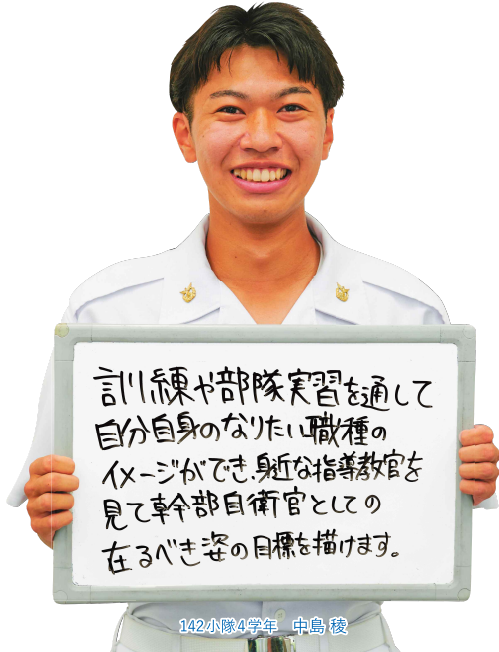 訓練や部隊実習を通して
自分自身のなりたい職種の
イメージができ、身近な指導教官を
見て幹部自衛官としての
在るべき姿の目標を描けます。
142小隊4学年 中島 稜